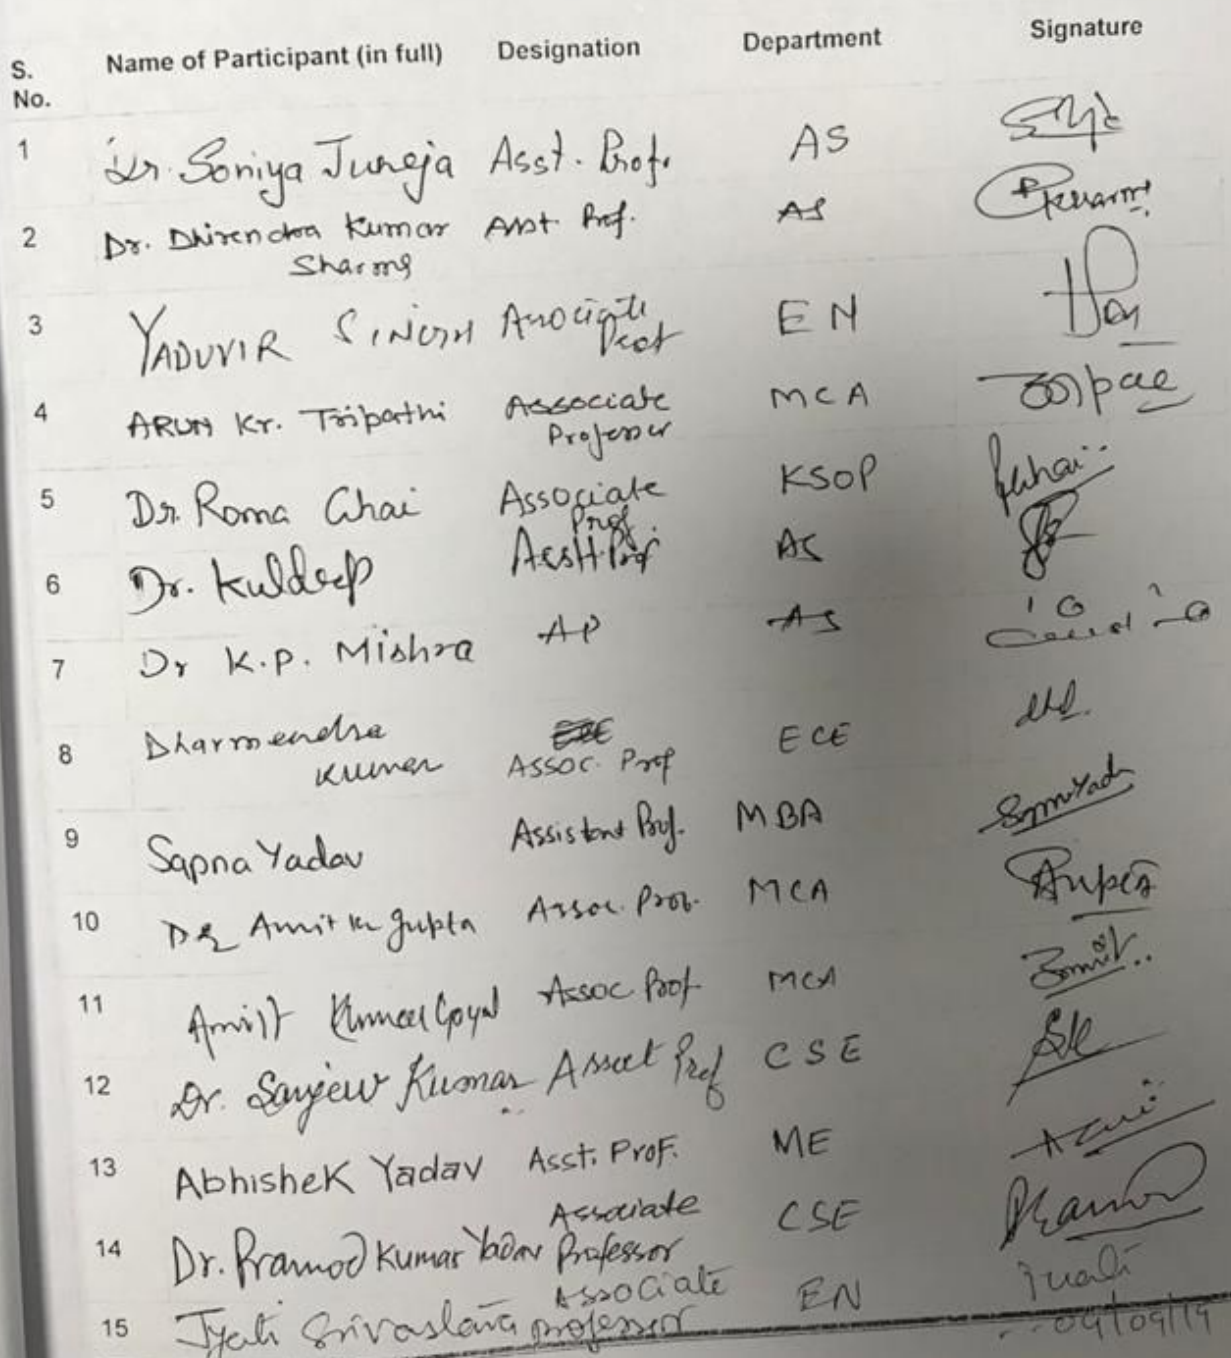 S. No. Name of Participant (in full) Designation Department Signature
1 Dr. Soniya Juneja Asst. Prof. AS
2 Dr. Dhirendra Kumar Sharma Asst. Prof. AS
3 YADUVIR SINGH Associate Prof EN
4 ARUN Kr. Tripathi Associate Professor MCA
5 Dr. Roma Ghai Associate Prof KSOP
6 Dr. Kuldeep Asstt. Prof AS
7 Dr K.P. Mishra AP AS
8 Dharmendra Kumar Assoc. Prof ECE
9 Sapna Yadav Assistant Prof. MBA
10 Dr Amit Kr Gupta Assoc. Prof. MCA Gupta
11 Amit Kumar Goyal Assoc Prof. MCA
12 Dr. Sanjeev Kumar Prof CSE
13 Abhishek Yadav Asst. Prof. ME
14 Dr. Pramod Kumar Yadav Associate Professor CSE Pramod
15 Jyoti Srivastava Associate professor EN Jyoti
09/09/19